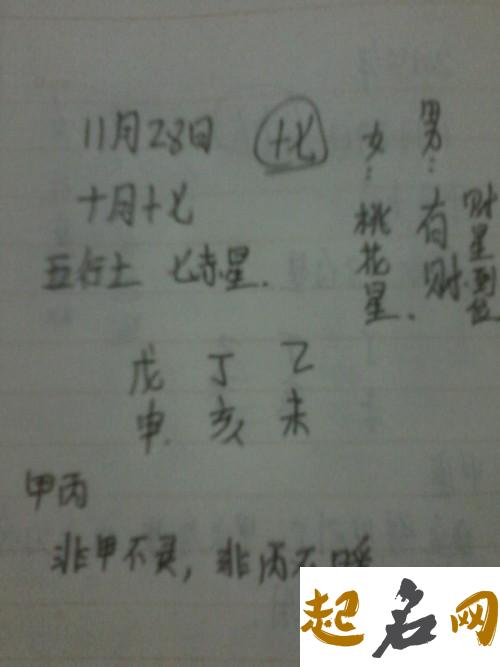 11月28日 十七
十月十七
五行土 七赤星.
男：有财.
财星到位
女：桃花星.
戊 丁 乙
申 亥 未
甲丙
非甲不灵，非丙不暖
起名网